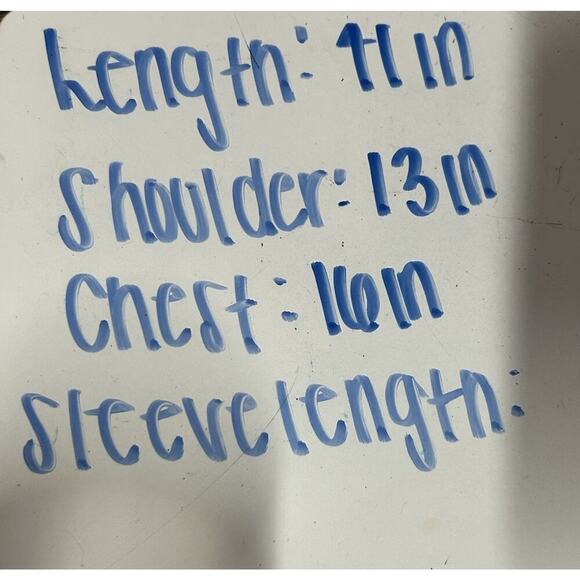 Length: 41 in
Shoulder: 13 in
Chest: 16 in
Sleeve length: